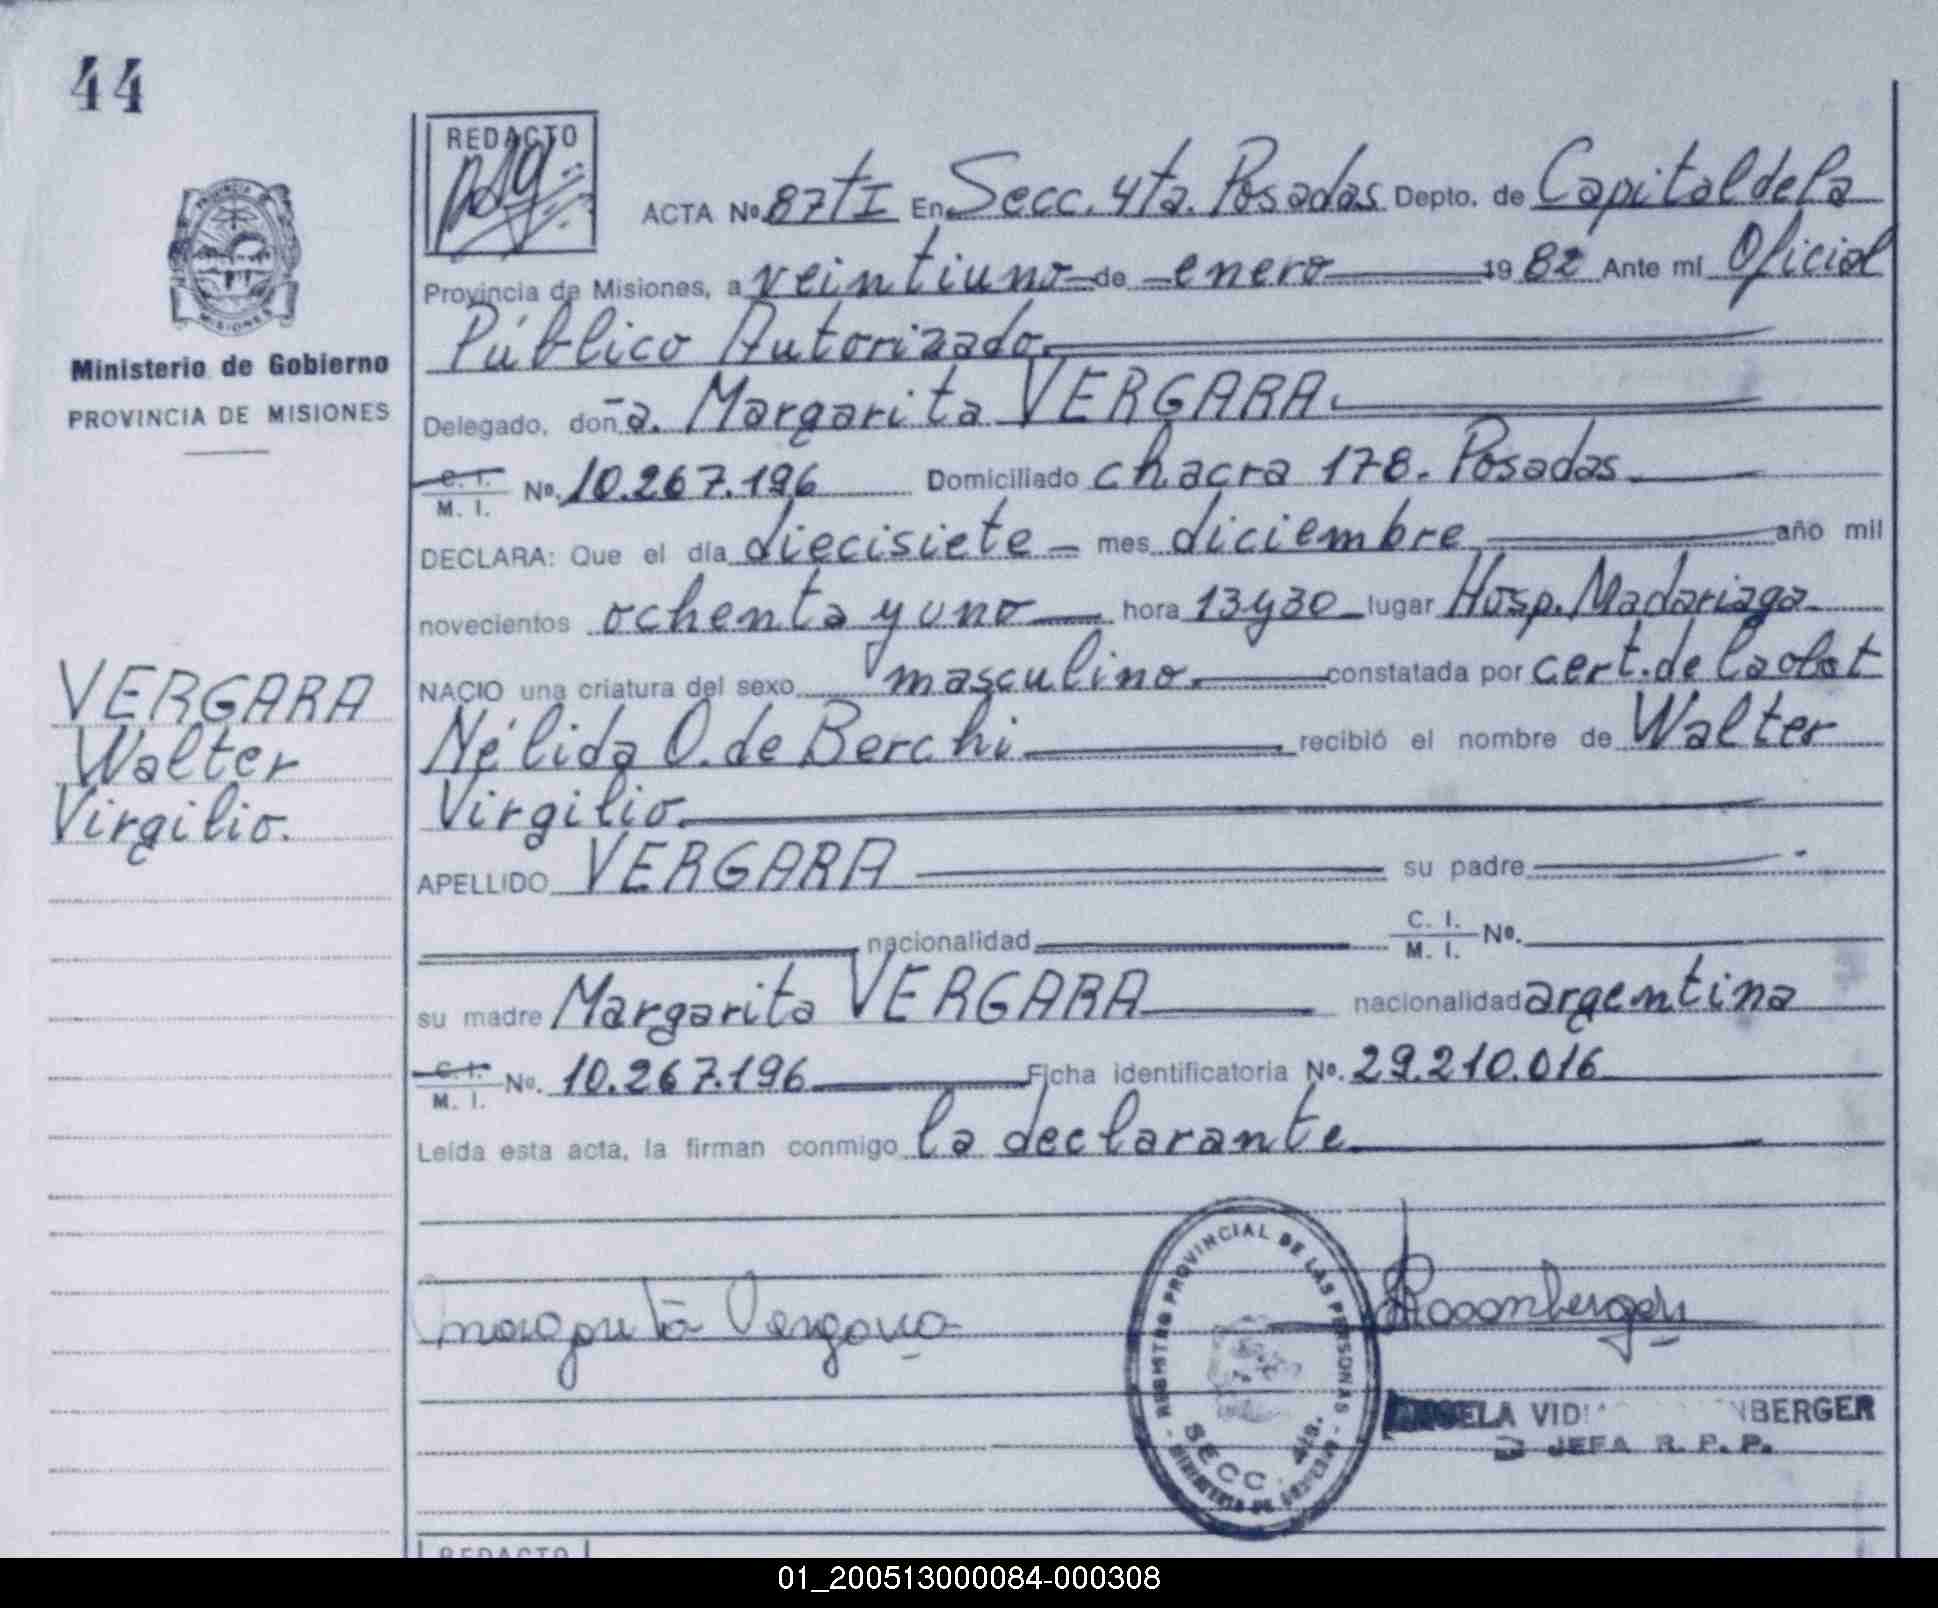 44
REDACTO
PROVINCIA
MISIONES
Ministerio de Gobierno
PROVINCIA DE MISIONES
VERGARA
Walter
Virgilio.
ACTA No. 87 tI En Secc. 4ta. Posadas Depto. de Capital de la
Provincia de Misiones, a veintiuno de enero 19 82 Ante mí Oficial
Público Autorizado.
Delegado, don-a. Margarita VERGARA.
C. I. / M. I. No. 10.267.196 Domiciliado chacra 178. Posadas
DECLARA: Que el día diecisiete mes diciembre año mil
novecientos ochenta y uno hora 13y30 lugar Hosp. Madariaga
NACIO una criatura del sexo masculino. constatada por cert. de la obst
Nélida O. de Berchi recibió el nombre de Walter
Virgilio.
APELLIDO VERGARA su padre
nacionalidad C. I. / M. I. No.
su madre Margarita VERGARA nacionalidad argentina
C. I. / M. I. No. 10.267.196 Ficha identificatoria No. 29.210.016
Leída esta acta, la firman conmigo la declarante
Margarita Vergara
REGISTRO PROVINCIAL DE LAS PERSONAS
SECC. 4ta.
MINISTERIO DE GOBIERNO
BERGER
JEFA R. P. P.
REDACTO
01_200513000084-000308